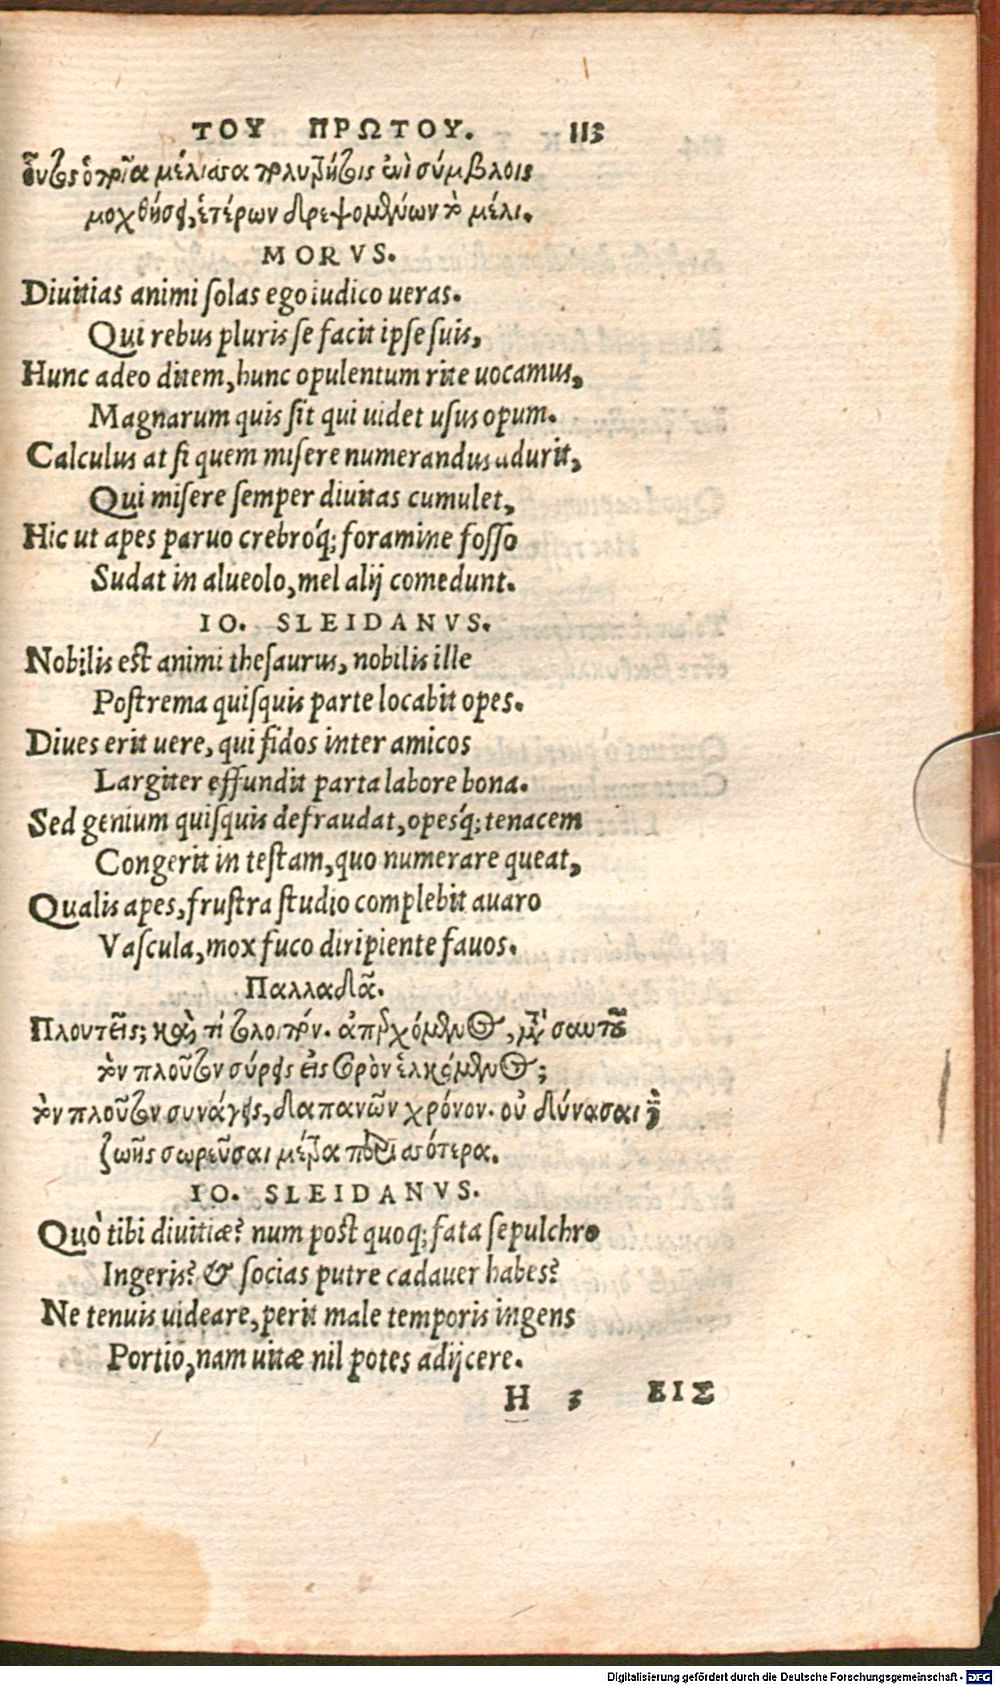 ΤΟΥ ΠΡΩΤΟΥ. 113
οὗτος ὁποῖα μέλισσα πολυτρήτοις ἐνὶ σίμβλοις
μοχθήσει, ἑτέρων δρεψομένων τὸ μέλι.
MORVS.
Diuitias animi solas ego iudico ueras.
Qui rebus pluris se facit ipse suis,
Hunc adeo ditem, hunc opulentum rite uocamus,
Magnarum quis sit qui uidet usus opum.
Calculus at si quem misere numerandus adurit,
Qui misere semper diuitas cumulet,
Hic ut apes paruo crebroq́; foramine fosso
Sudat in alueolo, mel alij comedunt.
IO. SLEIDANVS.
Nobilis est animi thesaurus, nobilis ille
Postrema quisquis parte locabit opes.
Diues erit uere, qui fidos inter amicos
Largiter effundit parta labore bona.
Sed genium quisquis defraudat, opesq́; tenacem
Congerit in testam, quo numerare queat,
Qualis apes, frustra studio complebit auaro
Vascula, mox fuco diripiente fauos.
Παλλαδᾶ.
Πλουτεῖς; καὶ τί τὸ λοιπόν. ἀπερχόμενος, μετὰ σαυτοῦ
τὸν πλοῦτον σύρεις εἰς σορὸν ἑλκόμενος;
τὸν πλοῦτον συνάγεις, δαπανῶν χρόνον. οὐ δύνασαι δὲ
ζωῆς σωρεῦσαι μέτρα περισσότερα.
IO. SLEIDANVS.
Quò tibi diuitiæ? num post quoq; fata sepulchro
Ingeris? & socias putre cadauer habes?
Ne tenuis uideare, perit male temporis ingens
Portio, nam uitæ nil potes adijcere.
H 3 ΕΙΣ
Digitalisierung gefördert durch die Deutsche Forschungsgemeinschaft - DFG